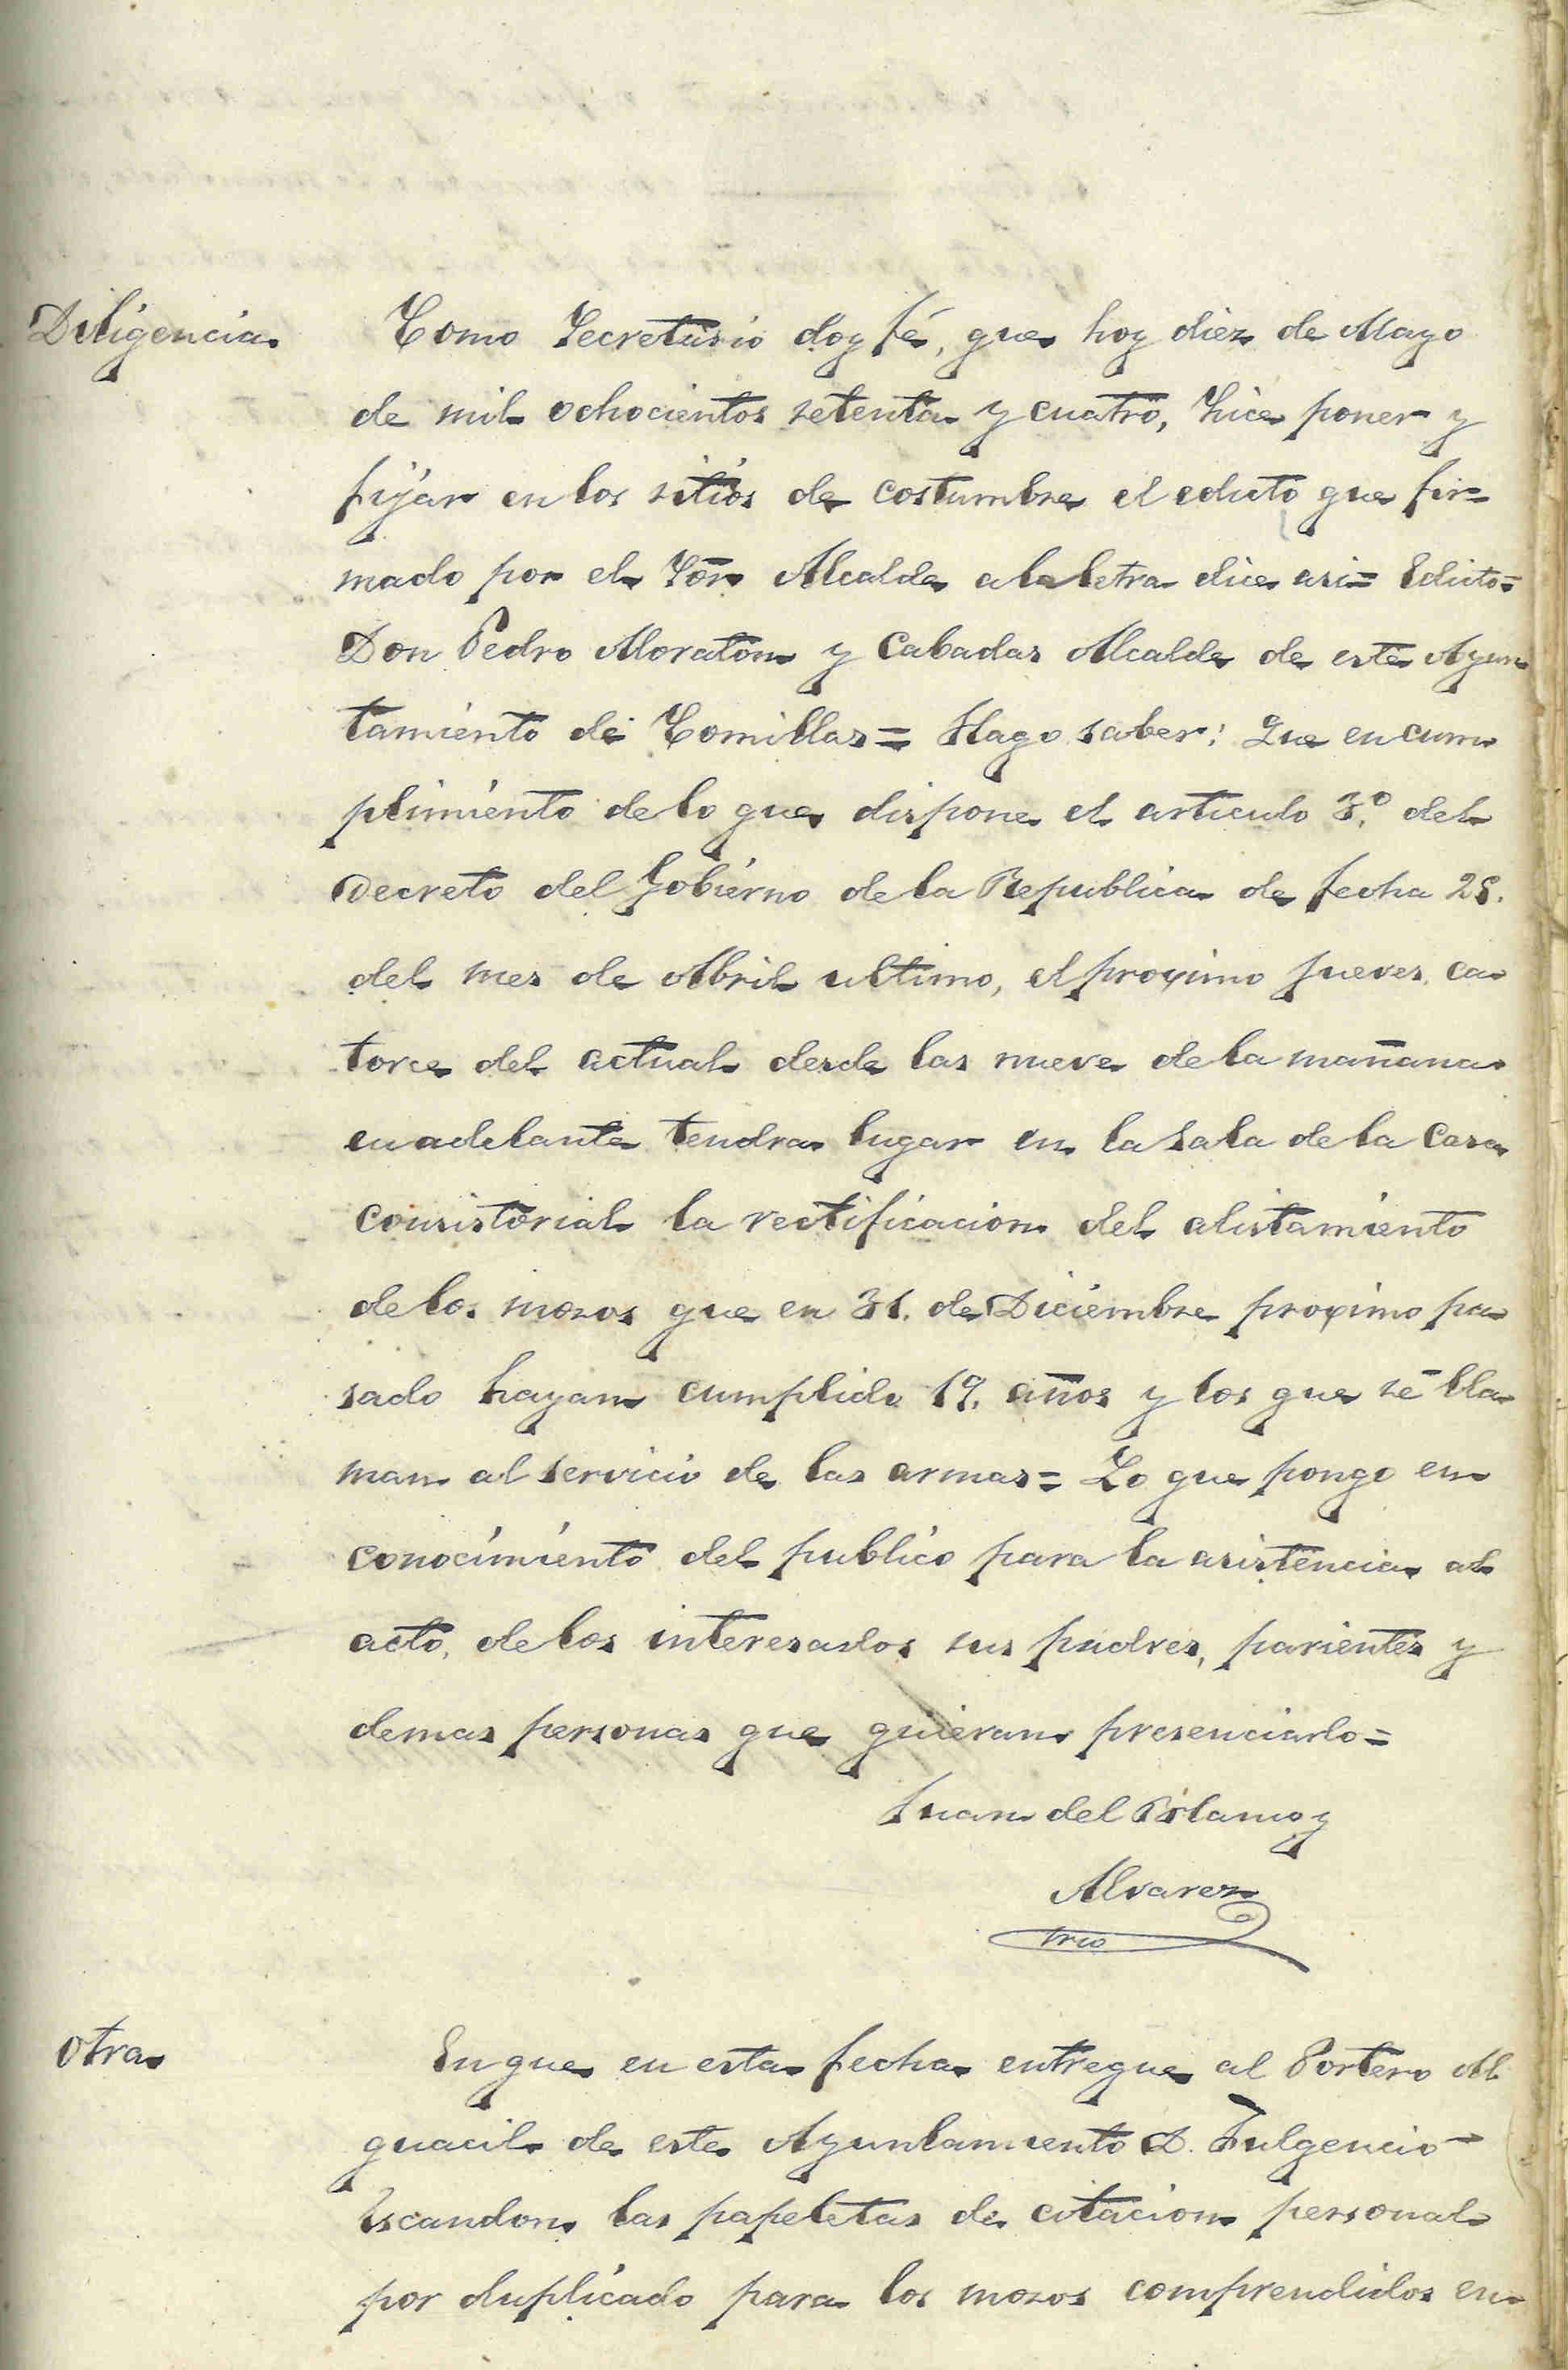 Diligencia
Como Secretario doy fé, que hoy diez de Mayo
de mil ochocientos setenta y cuatro, hice poner y
fijar en los sitios de costumbre el edicto que fir-
mado por el Sõr Alcalde a la letra dice asi= Edicto=
Don Pedro Moraton y Cabadas Alcalde de este Ayun
tamiento de Comillas= Hago saber: Que en cum
plimiento de lo que dispone el articulo 3.º del
Decreto del Gobierno de la Republica de fecha 28.
del mes de Abril ultimo, el proximo jueves ca-
torce del actual desde las nueve de la mañana
en adelante tendra lugar en la Sala de la Casa
consistorial la rectificacion del alistamiento
de los mozos que en 31. de Diciembre proximo pa-
sado hayan cumplido 19. años y los que se lla-
man al servicio de las armas= Lo que pongo en
conocimiento del publico para la asistencia al
acto, de los interesados sus padres, parientes y
demas personas que quieran presenciarlo=
Juan del y
Alvarez
Srio
Otra
En que en esta fecha entregue al Portero Al
guacil de este Ayuntamiento D. Fulgencio
Escandon las papeletas de citacion personal
por duplicado para los mozos comprendidos en